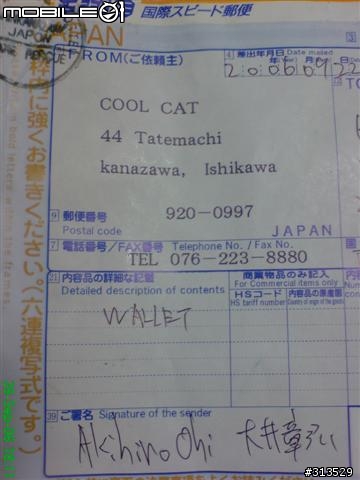 MOBILE01
国際スピード郵便
JAPAN
FROM(ご依頼主)
4 差出年月日 Date mailed
COOL CAT
44 Tatemachi
kanazawa, Ishikawa
9 郵便番号 920-0997
Postal code JAPAN
7 電話番号/FAX番号 Telephone No. / Fax No.
TEL 076-223-8880
21 内容品の詳細な記載
Detailed description of contents
商業物品のみ記入
For Commercial items only
HSコード
HS tariff number
内容品の原産国
Country of origin of the goods
WALLET
39 ご署名 Signature of the sender
Akihiro Ohi 大井章弘
に強くお書きください。(六連複写式です。)
#313529